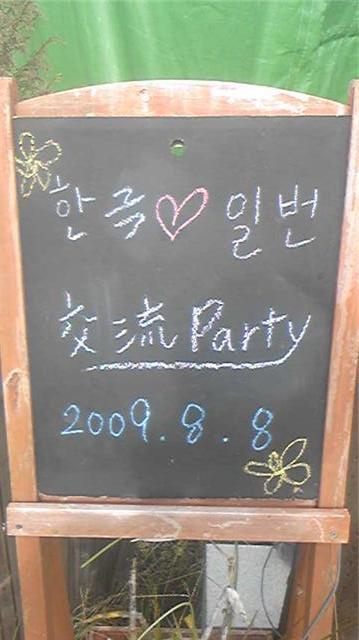 한국♡일번
交流 Party
2009.8.8